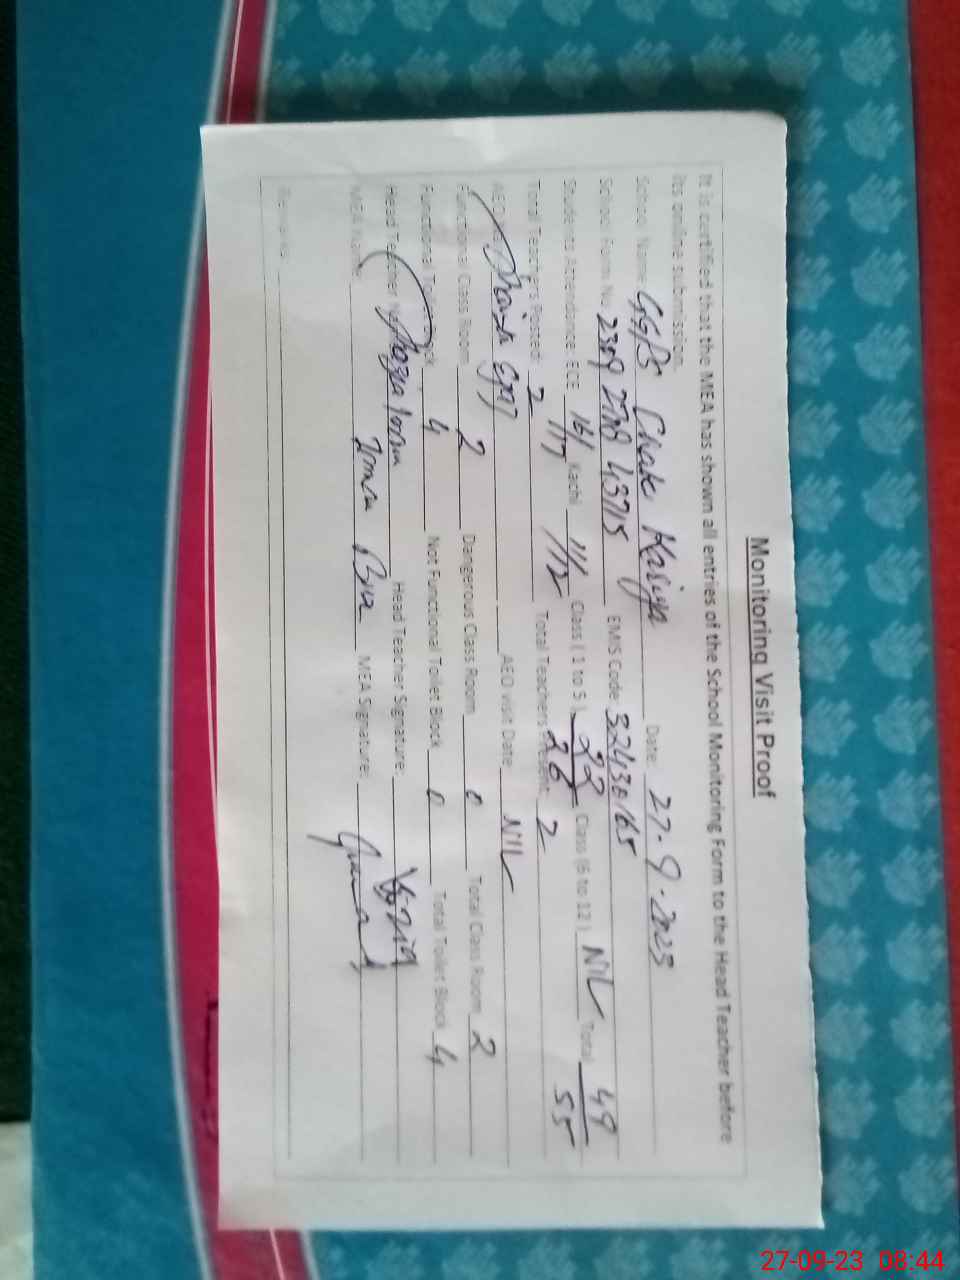 Monitoring Visit Proof
It is certified that the MEA has shown all entries of the School Monitoring Form to the Head Teacher before
its online submission.
School Name: GGPS Chak Date: 27-9-2023
School Form No. EMIS Code
Students Attendance: ECE 16/17 Kachi 11/12 Class (1 to 5) 22/26 Class (6 to 12) NIL Total 49/55
Total Teachers Posted: 2 Total Teachers 2
AEO AEO visit Date: NIL
Functional Class Room 2 Dangerous Class Room 0 Total Class Room 2
Functional Toilet Block 4 Not Functional Toilet Block 0 Total Toilet Block 4
Head Teacher Head Teacher Signature:
MEA Name: MEA Signature:
Remarks
27-09-23 08:44